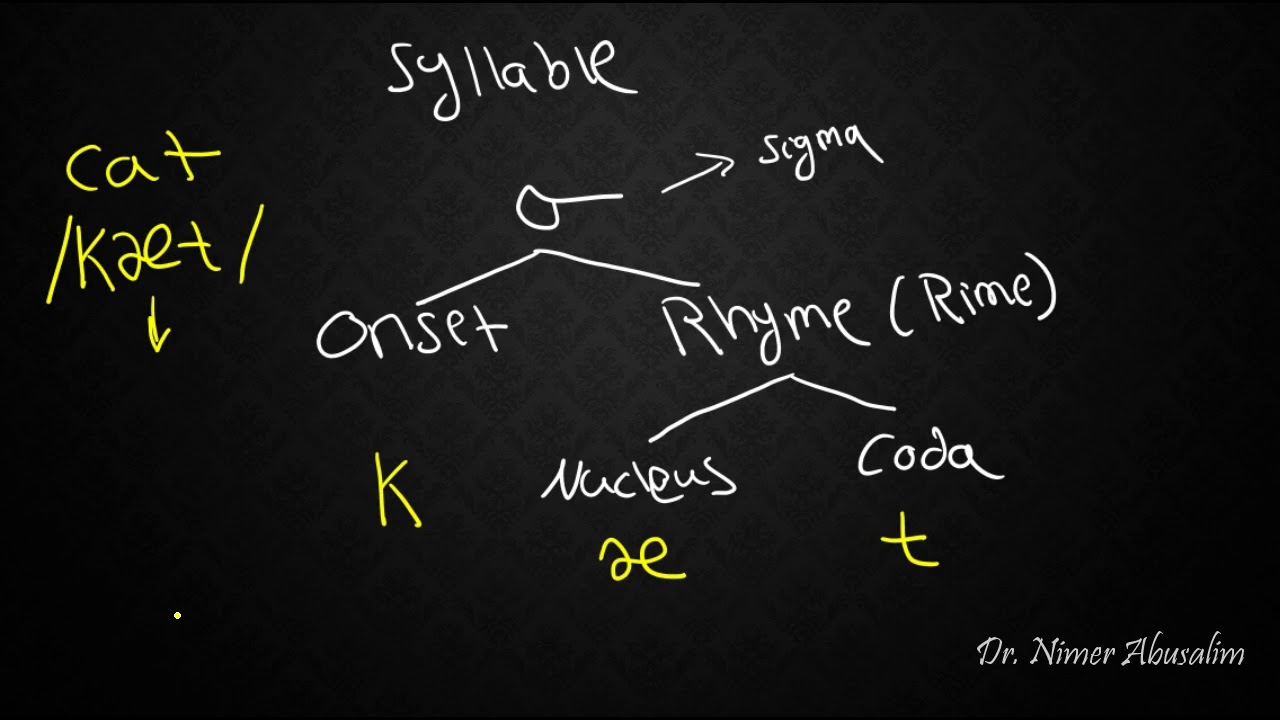 Syllable
cat
/kæt/
σ → sigma
Onset
Rhyme (Rime)
Nucleus
Coda
K
æ
t
Dr. Nimer Abusalim